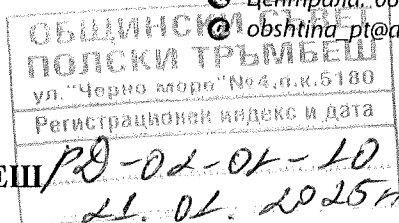 Централа: 06
obshtina_pt@a
ОБЩИНСКИ СЪВЕТ
ПОЛСКИ ТРЪМБЕШ
ул."Черно море"№4,п.к.5180
Регистрационен индекс и дата
ЕШ РД-02-01-10
21. 01. 2025г